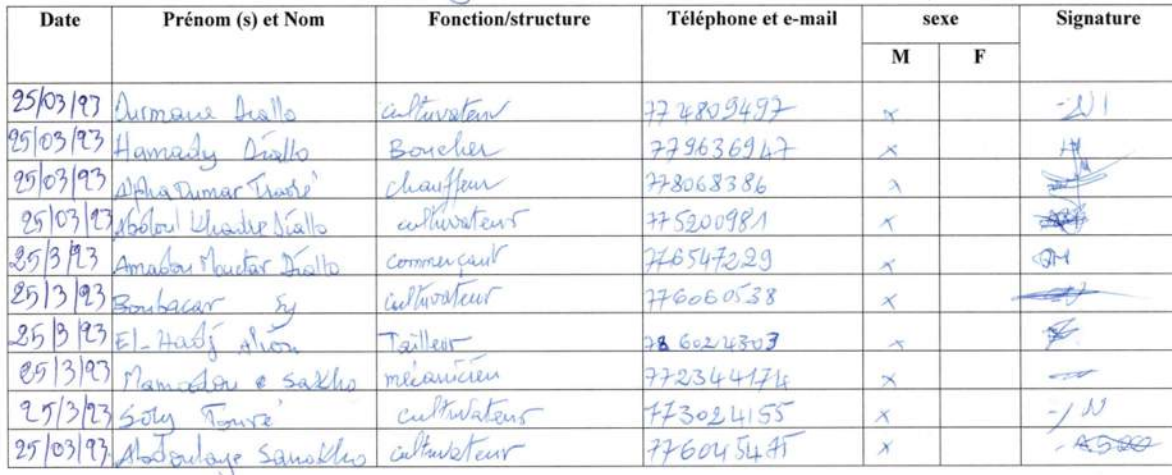 Date Prénom (s) et Nom Fonction/structure Téléphone et e-mail sexe Signature
M F
25/03/23 Ousmane Diallo cultivateur 77 4809497 x
25/03/23 Hamady Diallo Boucher 779636947 x
25/03/23 Alpha Oumar Traoré chauffeur 778068386 x
25/03/23 Abdoul Khadre Diallo cultivateur 775200981 x
25/3/23 Amadou Mouctar Diallo commerçant 776547229 x
25/3/23 Boubacar Sy cultivateur 776060538 x
25/3/23 EL-Hadj Tailleur 78 6024303 x
25/3/23 Mamadou Sakho mécanicien 772344174 x
25/3/23 Soly Touré cultivateur 773024155 x
25/03/23 Abdoulaye Sanokho cultivateur 776045475 x